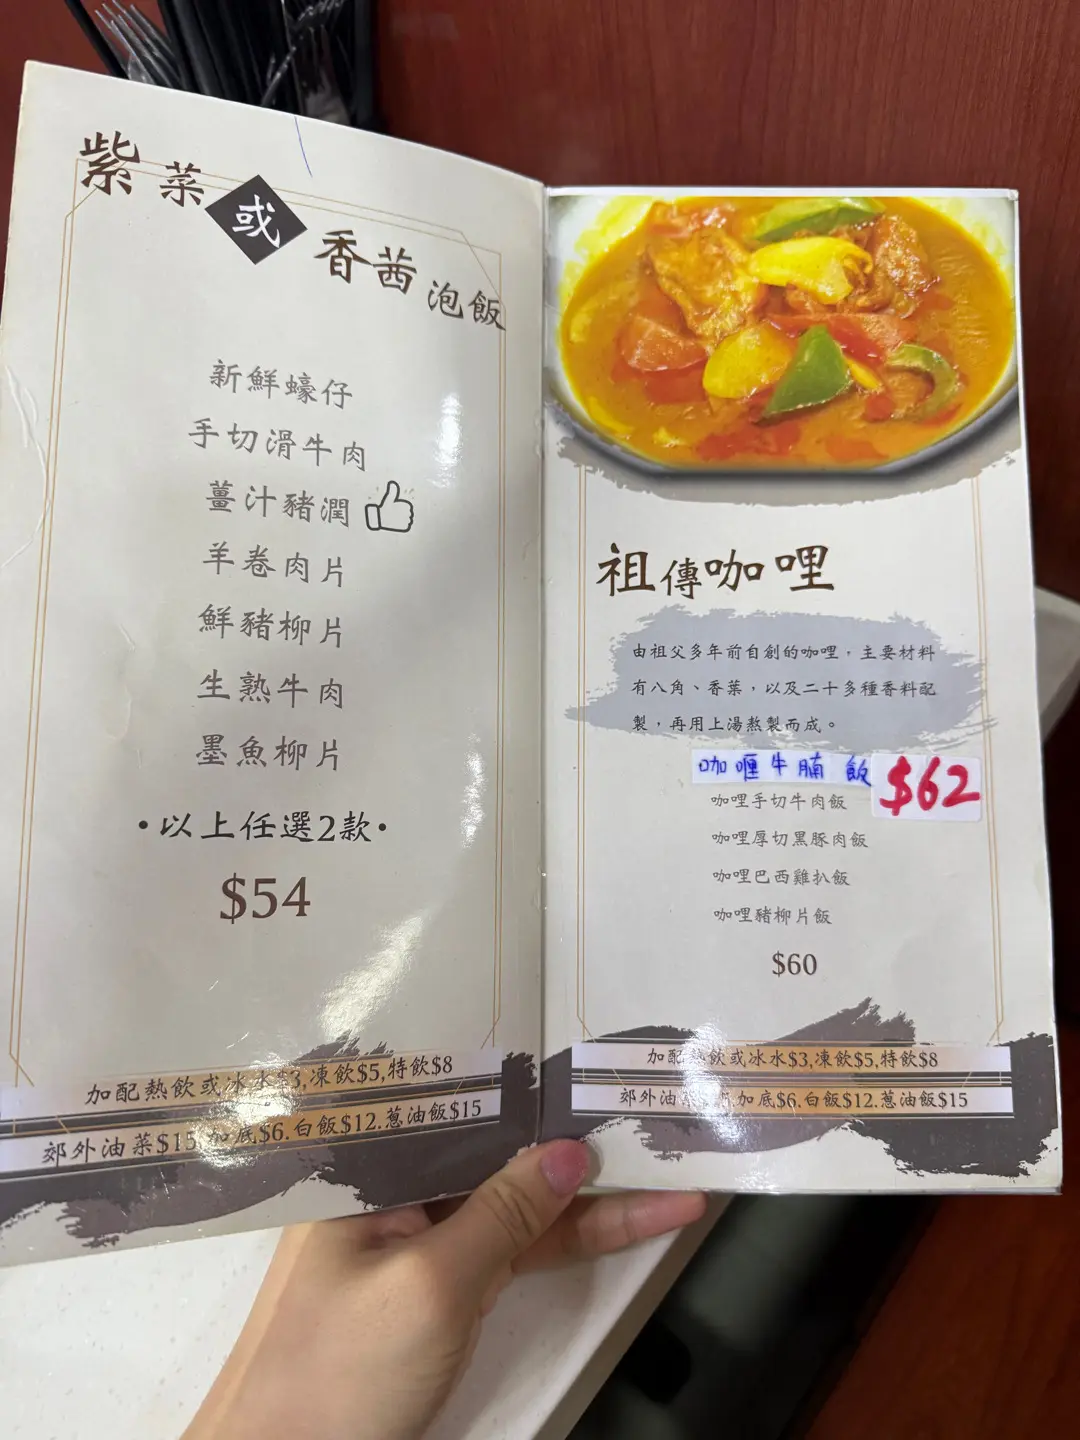 紫菜或香茜泡飯
新鮮蠔仔
手切滑牛肉
薑汁豬潤
羊卷肉片
鮮豬柳片
生熟牛肉
墨魚柳片
•以上任選2款•
$54
加配熱飲或冰水$3,凍飲$5,特飲$8
郊外油菜$15.加底$6.白飯$12.蔥油飯$15
祖傳咖哩
由祖父多年前自創的咖哩，主要材料
有八角、香葉，以及二十多種香料配
製，再用上湯熬製而成。
咖喱牛腩飯 $62
咖哩手切牛肉飯
咖哩厚切黑豚肉飯
咖哩巴西雞扒飯
咖哩豬柳片飯
$60
加配熱飲或冰水$3,凍飲$5,特飲$8
郊外油 加底$6.白飯$12.蔥油飯$15